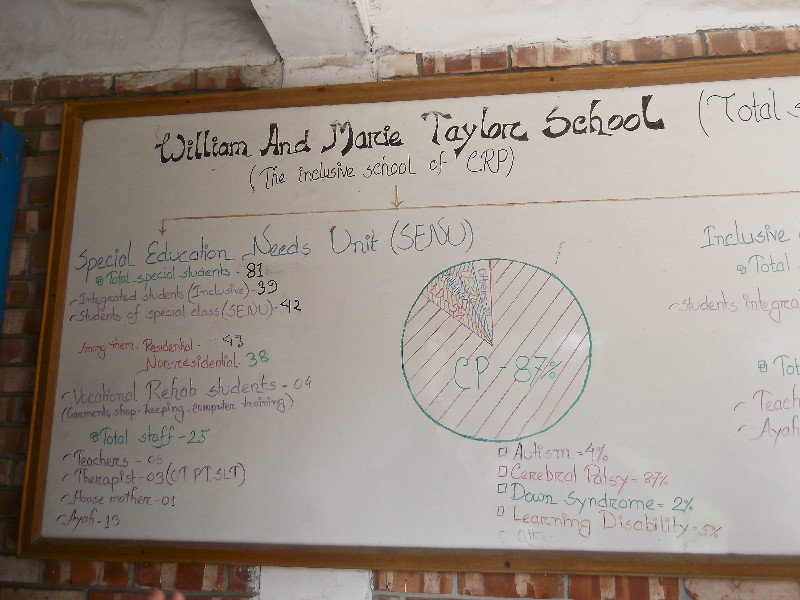 William And Marie Taylor School (Total
(The inclusive school of CRP)
Special Education Needs Unit (SENU)
Total special students - 81
Integrated students (Inclusive) - 39
Students of special class (SENU) - 42
Among them, Residential - 43
Non-residential - 38
Vocational Rehab students - 04
(Garments, shop-keeping, computer training)
Total staff - 25
Teachers -
Therapist - 03 (OT, PT, SLT)
House mother - 01
Ayah - 13
CP - 87%
Autism = 4%
Cerebral Palsy = 87%
Down Syndrome = 2%
Learning Disability = 5%
Inclusive
Total
Students integra
Tot
Teach
Ayah